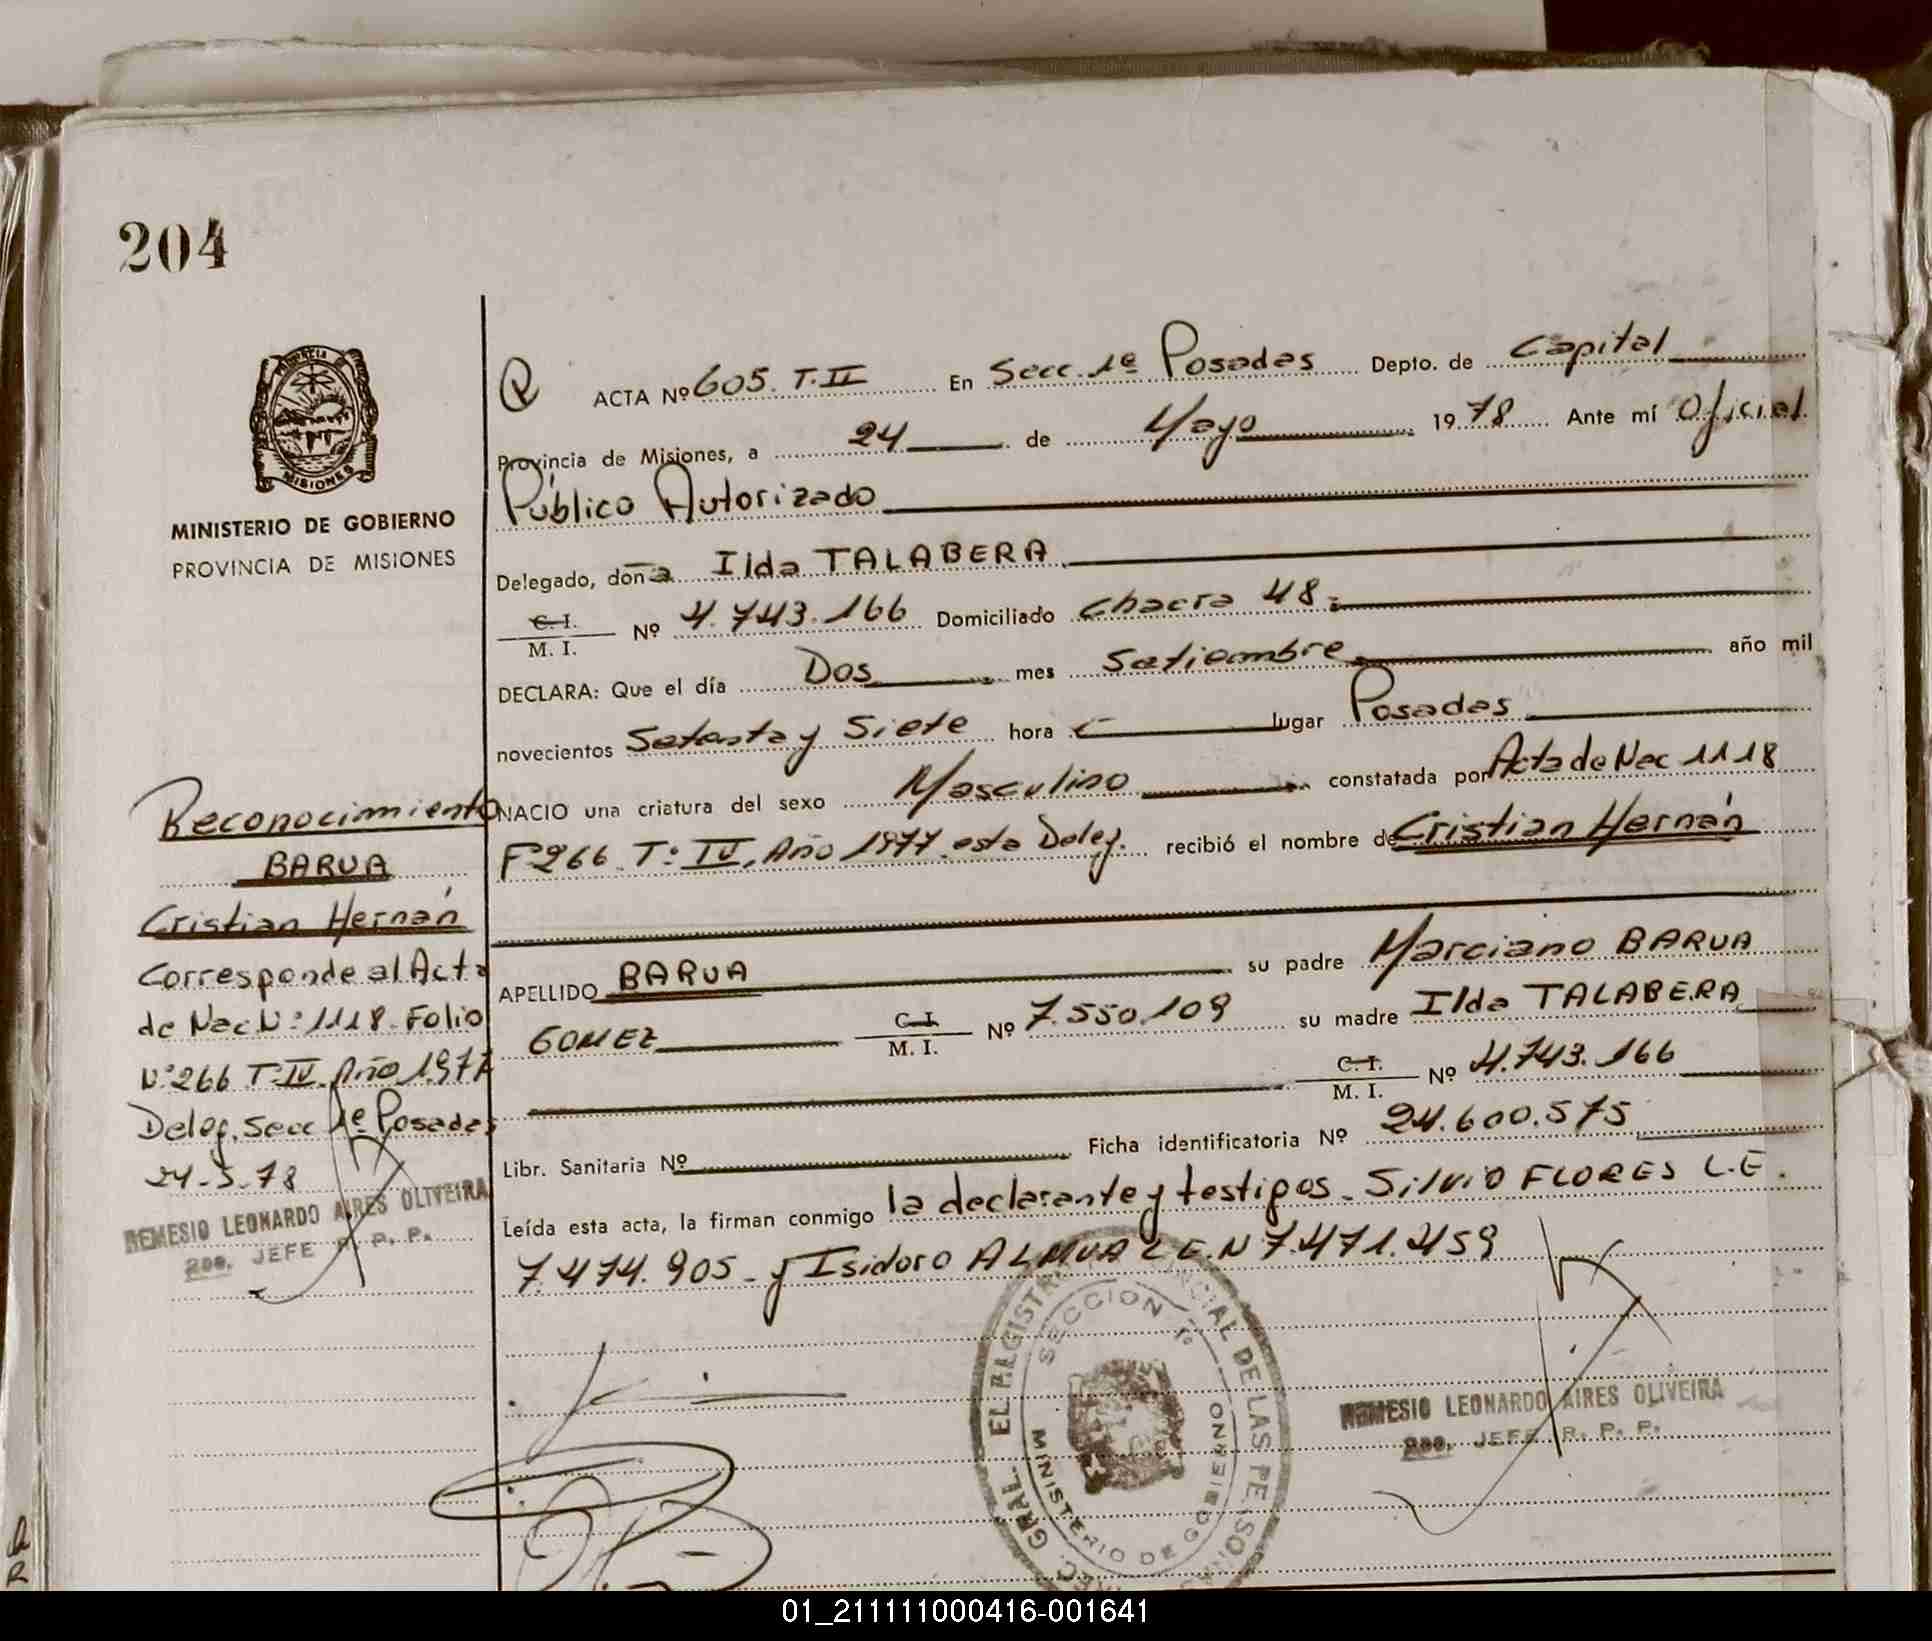 204
MISIONES
MINISTERIO DE GOBIERNO
PROVINCIA DE MISIONES
Reconocimiento
BARUA
Cristian Hernán
Corresponde al Acta
de Nac Nº 1118. Folio
Nº 266 T. IV. Año 1977
Deleg. Secc 1ª Posadas
24-5-78
REMESIO LEONARDO AIRES OLIVEIRA
2do. JEFE R. P. P.
Q ACTA Nº 605. T. II En Secc. 1ª Posadas Depto. de Capital
Provincia de Misiones, a 24 de Mayo 1978 Ante mí Oficial
Público Autorizado
Delegado, doña Ilda TALABERA
C. I.
M. I. Nº 4.743.166 Domiciliado Chacra 48
DECLARA: Que el día Dos mes Setiembre año mil
novecientos Setenta y Siete hora lugar Posadas
NACIO una criatura del sexo Masculino constatada por Acta de Nac 1118
Fº 266 Tº IV, Año 1977 esta Deleg. recibió el nombre de Cristian Hernán
APELLIDO BARUA su padre Marciano BARUA
GOMEZ C. I.
M. I. Nº 7.550.109 su madre Ilda TALABERA
C. I.
M. I. Nº 4.743.166
Libr. Sanitaria Nº Ficha identificatoria Nº 24.600.575
Leída esta acta, la firman conmigo la declarante y testigos. Silvio FLORES L.E.
7.474.905 - y Isidoro ALMUA L.E. N 7.471.459
SECCION 1º
MINISTERIO DE GOBIERNO
REMESIO LEONARDO AIRES OLIVEIRA
2do. JEFE R. P. P.
01_211111000416-001641